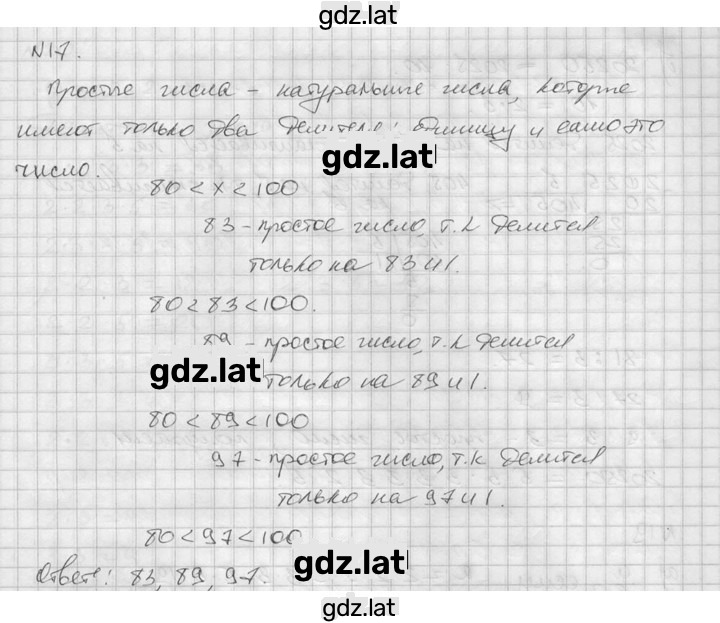 gdz.lat
N17.
Простые числа – натуральные числа, которые
имеют только два делителя: единицу и само это
gdz.lat
число.
80 < x < 100
83 - простое число, т.к делится
только на 83 и 1.
80 < 83 < 100.
89 - простое число, т.к делится
gdz.lat
только на 89 и 1.
80 < 89 < 100
97 - простое число, т.к делится
только на 97 и 1.
80 < 97 < 100
gdz.lat
Ответ: 83, 89, 97.
gdz.lat